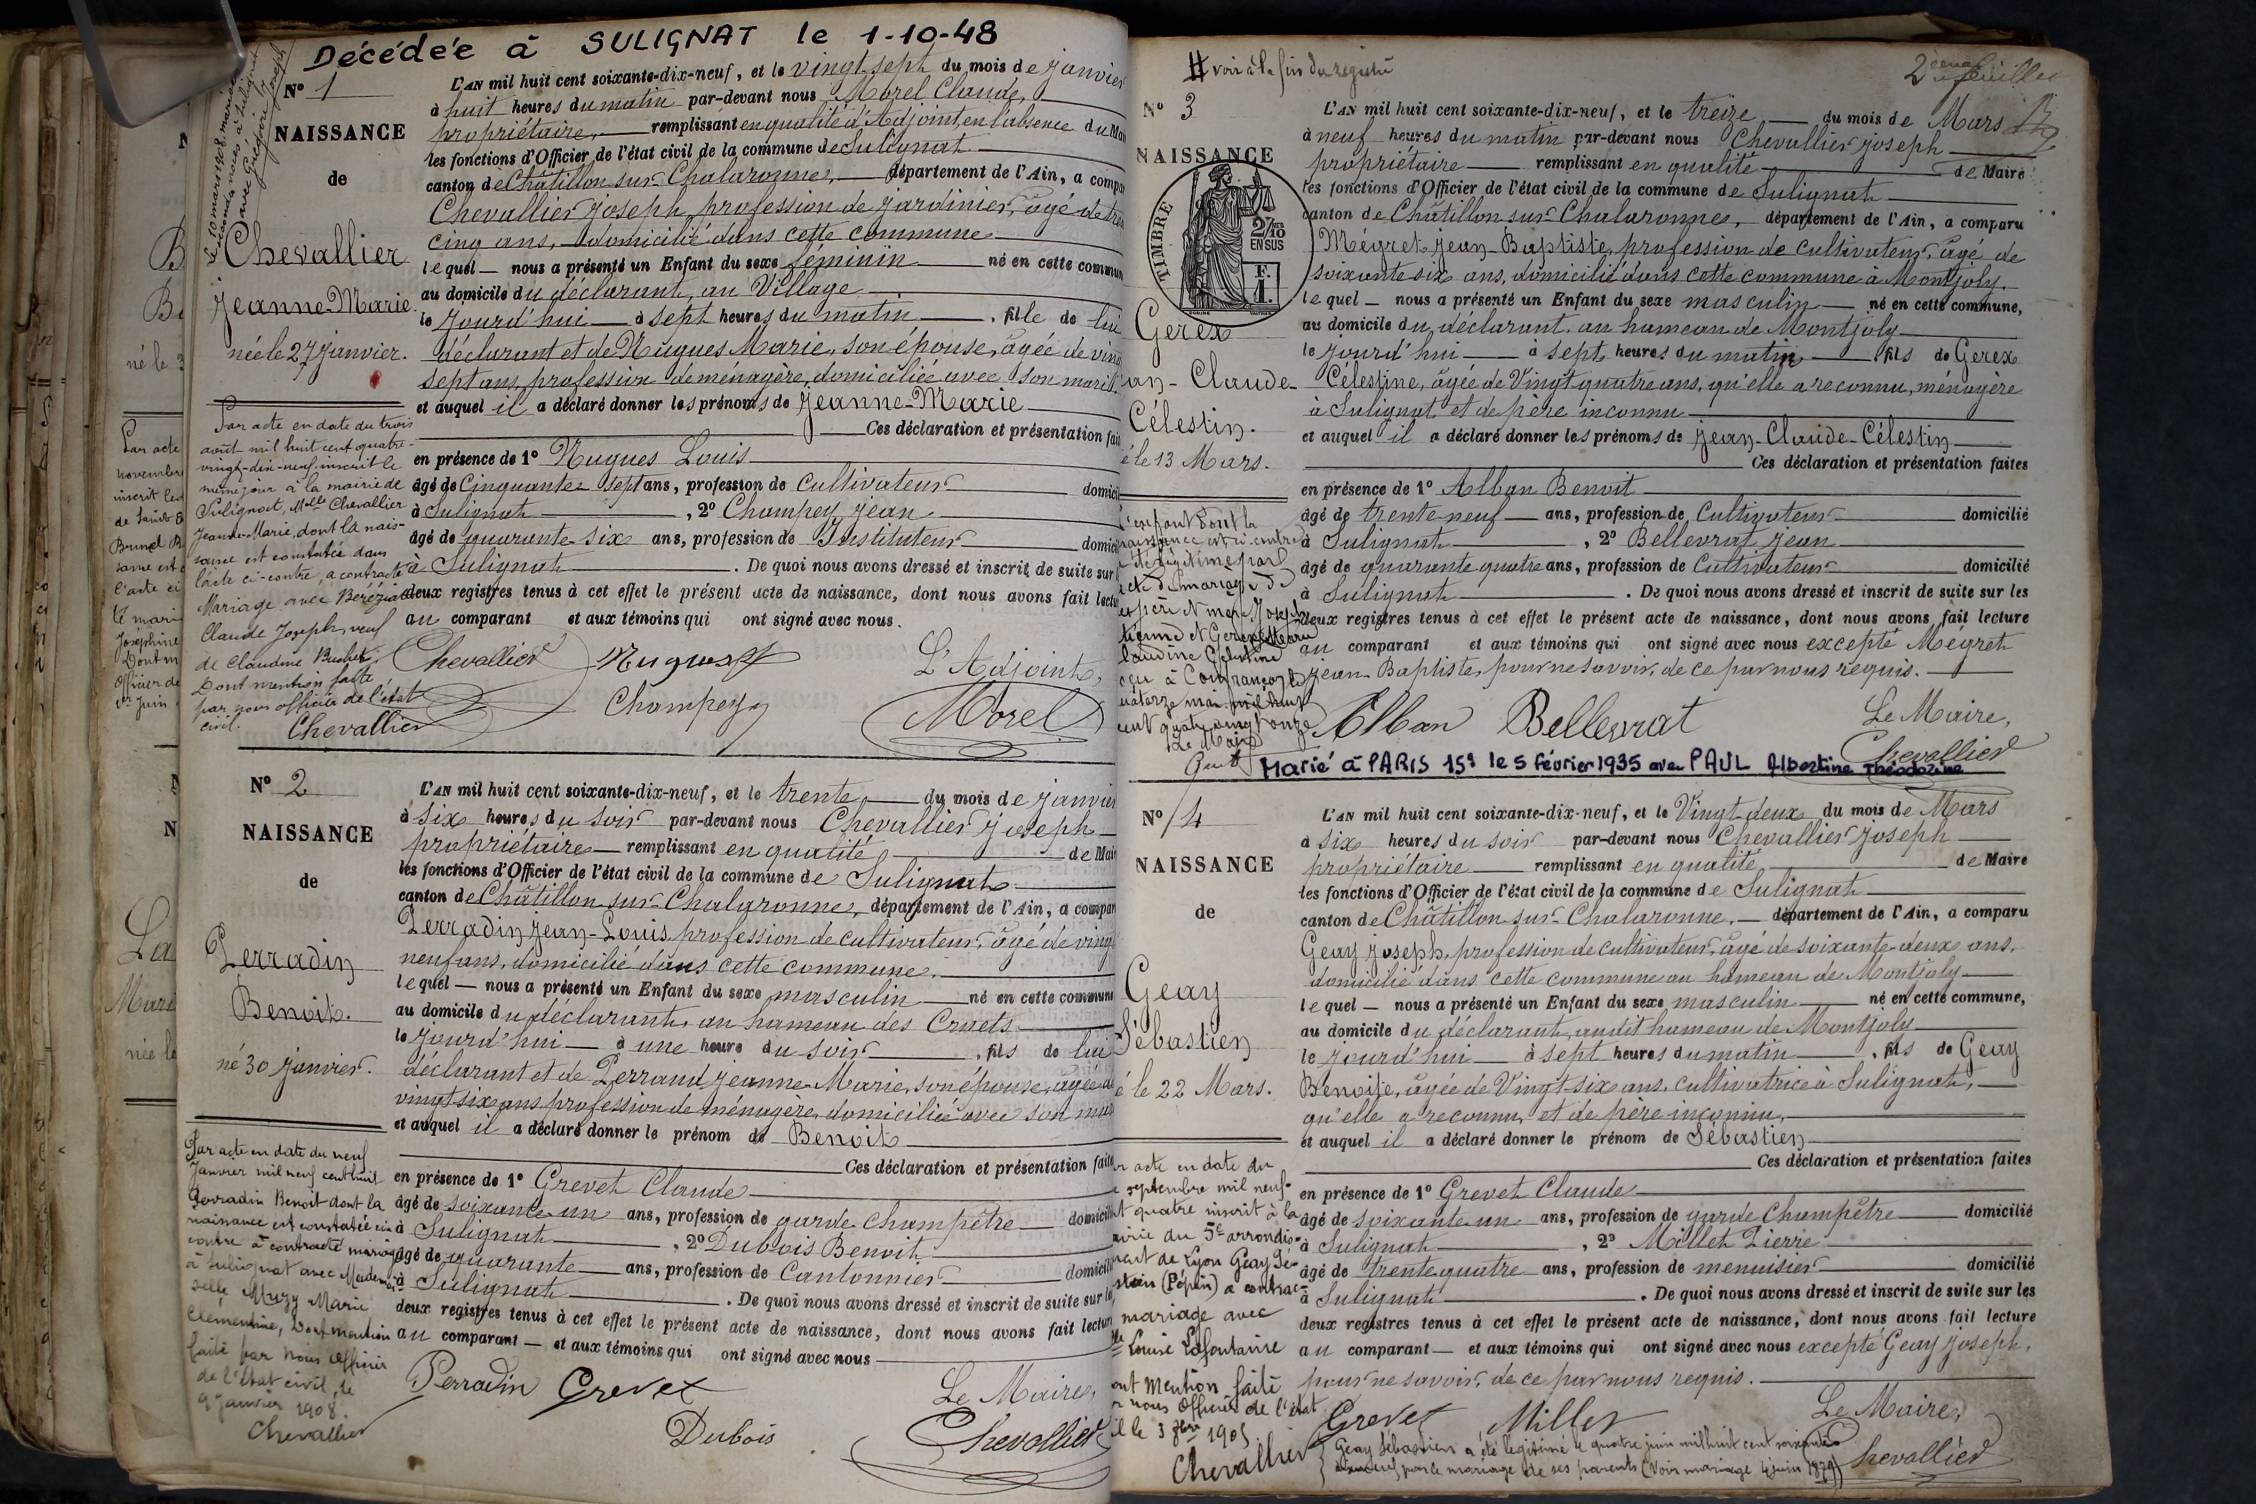 Décédée à SULIGNAT le 1-10-48
Nº 1
NAISSANCE
de
Chevallier
Jeanne-Marie.
née le 27 janvier.
L'AN mil huit cent soixante-dix-neuf, et le vingt sept du mois de janvier
à huit heures du matin par-devant nous Morel Claude,
propriétaire, remplissant en qualité d'Adjoint en l'absence du
les fonctions d'Officier de l'état civil de la commune de Sulignat
canton de Châtillon sur Chalaronne, département de l'Ain, a
Chevallier Joseph, profession de jardinier, âgé de
cinq ans, domicilié dans cette commune
lequel nous a présenté un Enfant du sexe féminin né en cette
au domicile du déclarant, au Village
le jourd'hui à sept heures du matin, fille de lui
déclarant et de Nugues Marie, son épouse, âgée de
sept ans, profession de ménagère, domiciliée avec son mari
et auquel il a déclaré donner les prénoms de Jeanne-Marie
Ces déclaration et présentation
en présence de 1º Nugues Louis
âgé de Cinquante sept ans, profession de Cultivateur
à Sulignat, 2º Champey Jean
âgé de quarante six ans, profession de Instituteur
à Sulignat. De quoi nous avons dressé et inscrit de suite sur
deux registres tenus à cet effet le présent acte de naissance, dont nous avons fait
au comparant et aux témoins qui ont signé avec nous.
Chevallier Nugues L'Adjoint,
Champey Morel
Par acte en date du trois
août mil huit cent quatre-
vingt-dix-neuf, inscrit le
même jour à la mairie de
Sulignat, Mlle Chevallier
Jeanne-Marie, dont la nais-
sance est constatée dans
l'acte ci-contre, a contracté
Mariage avec Bereziat
Claude Joseph, veuf
de Claudine
Dont mention faite
par nous officier de l'état
civil.
Chevallier
Nº 2
NAISSANCE
de
Perradin
Benoit.
né 30 janvier.
L'AN mil huit cent soixante-dix-neuf, et le trente du mois de janvier
à six heures du soir par-devant nous Chevallier Joseph
propriétaire remplissant en qualité de
les fonctions d'Officier de l'état civil de la commune de Sulignat
canton de Châtillon sur Chalaronne, département de l'Ain, a
Perradin Jean-Louis, profession de cultivateur, âgé de
neuf ans, domicilié dans cette commune,
lequel nous a présenté un Enfant du sexe masculin né en cette commune
au domicile du déclarant, au hameau des Cruets
le jourd'hui à une heure du soir, fils de lui
déclarant et de Perraud Jeanne-Marie, son épouse, âgée de
vingt six ans profession de ménagère, domiciliée avec son
et auquel il a déclaré donner le prénom de Benoit
Ces déclaration et présentation
en présence de 1º Grevet Claude
âgé de soixante un ans, profession de garde champêtre
à Sulignat, 2º Dubois Benoit
âgé de quarante ans, profession de Cantonnier
à Sulignat. De quoi nous avons dressé et inscrit de suite sur
deux registres tenus à cet effet le présent acte de naissance, dont nous avons fait
au comparant et aux témoins qui ont signé avec nous
Perradin Grevet Le Maire,
Dubois Chevallier
Par acte en date du neuf
Janvier mil neuf cent huit
Perradin Benoit dont la
naissance est constatée ci
contre a contracté mariage
à Sulignat avec Mademoi-
selle Muzy Marie
Clémentine, Dont mention
faite par nous officier
de l'état civil, le
9 janvier 1908.
Chevallier
# voir à la fin du registre
2ème feuillet
Nº 3
NAISSANCE
TIMBRE
2/10 EN SUS
F. 1.
Gerex
Claude-
Célestin.
le 13 Mars.
L'AN mil huit cent soixante-dix-neuf, et le treize, du mois de Mars
à neuf heures du matin par-devant nous Chevallier Joseph
propriétaire remplissant en qualité de Maire
les fonctions d'Officier de l'état civil de la commune de Sulignat
canton de Châtillon sur Chalaronne, département de l'Ain, a comparu
Mégret Jean-Baptiste, profession de cultivateur, âgé de
soixante six ans, domicilié dans cette commune à Montjoly.
lequel nous a présenté un Enfant du sexe masculin né en cette commune,
au domicile du déclarant, au hameau de Montjoly
le jourd'hui à sept heures du matin, fils de Gerex
Célestine, âgée de Vingt quatre ans, qu'elle a reconnu, ménagère
à Sulignat et de père inconnu
et auquel il a déclaré donner les prénoms de Jean-Claude-Célestin
Ces déclaration et présentation faites
en présence de 1º Alban Benoit
âgé de trente neuf ans, profession de Cultivateur domicilié
à Sulignat, 2º Bellevrat Jean
âgé de quarante quatre ans, profession de Cultivateur domicilié
à Sulignat. De quoi nous avons dressé et inscrit de suite sur les
deux registres tenus à cet effet le présent acte de naissance, dont nous avons fait lecture
au comparant et aux témoins qui ont signé avec nous excepté Mégret
Jean Baptiste, pour ne savoir, de ce par nous requis.
Alban Bellevrat Le Maire,
Chevallier
Marié à PARIS 15e le 5 février 1935 avec PAUL Albertine Théodorine
Nº 4
NAISSANCE
de
Geay
Sébastien
le 22 Mars.
L'AN mil huit cent soixante-dix-neuf, et le Vingt deux du mois de Mars
à six heures du soir par-devant nous Chevallier Joseph
propriétaire remplissant en qualité de Maire
les fonctions d'Officier de l'état civil de la commune de Sulignat
canton de Châtillon sur Chalaronne, département de l'Ain, a comparu
Geay Joseph, profession de cultivateur, âgé de soixante deux ans,
domicilié dans cette commune au hameau de Montjoly
lequel nous a présenté un Enfant du sexe masculin né en cette commune,
au domicile du déclarant, audit hameau de Montjoly
le jourd'hui à sept heures du matin, fils de Geay
Benoite, âgée de Vingt six ans, cultivatrice à Sulignat,
qu'elle a reconnu, et de père inconnu,
et auquel il a déclaré donner le prénom de Sébastien
Ces déclaration et présentation faites
en présence de 1º Grevet Claude
âgé de soixante un ans, profession de garde Champêtre domicilié
à Sulignat, 2º Millet Pierre
âgé de trente quatre ans, profession de menuisier domicilié
à Sulignat. De quoi nous avons dressé et inscrit de suite sur les
deux registres tenus à cet effet le présent acte de naissance, dont nous avons fait lecture
au comparant et aux témoins qui ont signé avec nous excepté Geay Joseph,
pour ne savoir, de ce par nous requis.
Grevet Millet Le Maire,
Chevallier
Geay Sébastien a été légitimé le quatre juin mil huit cent soixante
dix neuf par le mariage de ses parents (Voir mariage 4 juin 1879)
acte en date du
septembre mil neuf
quatre inscrit à la
du 5e arrondis-
de Lyon Geay Sé-
(Pépin) a contrac-
mariage avec
Louise Lafontaine
Mention faite
nous Officier de l'état
le 3 1905
Chevallier